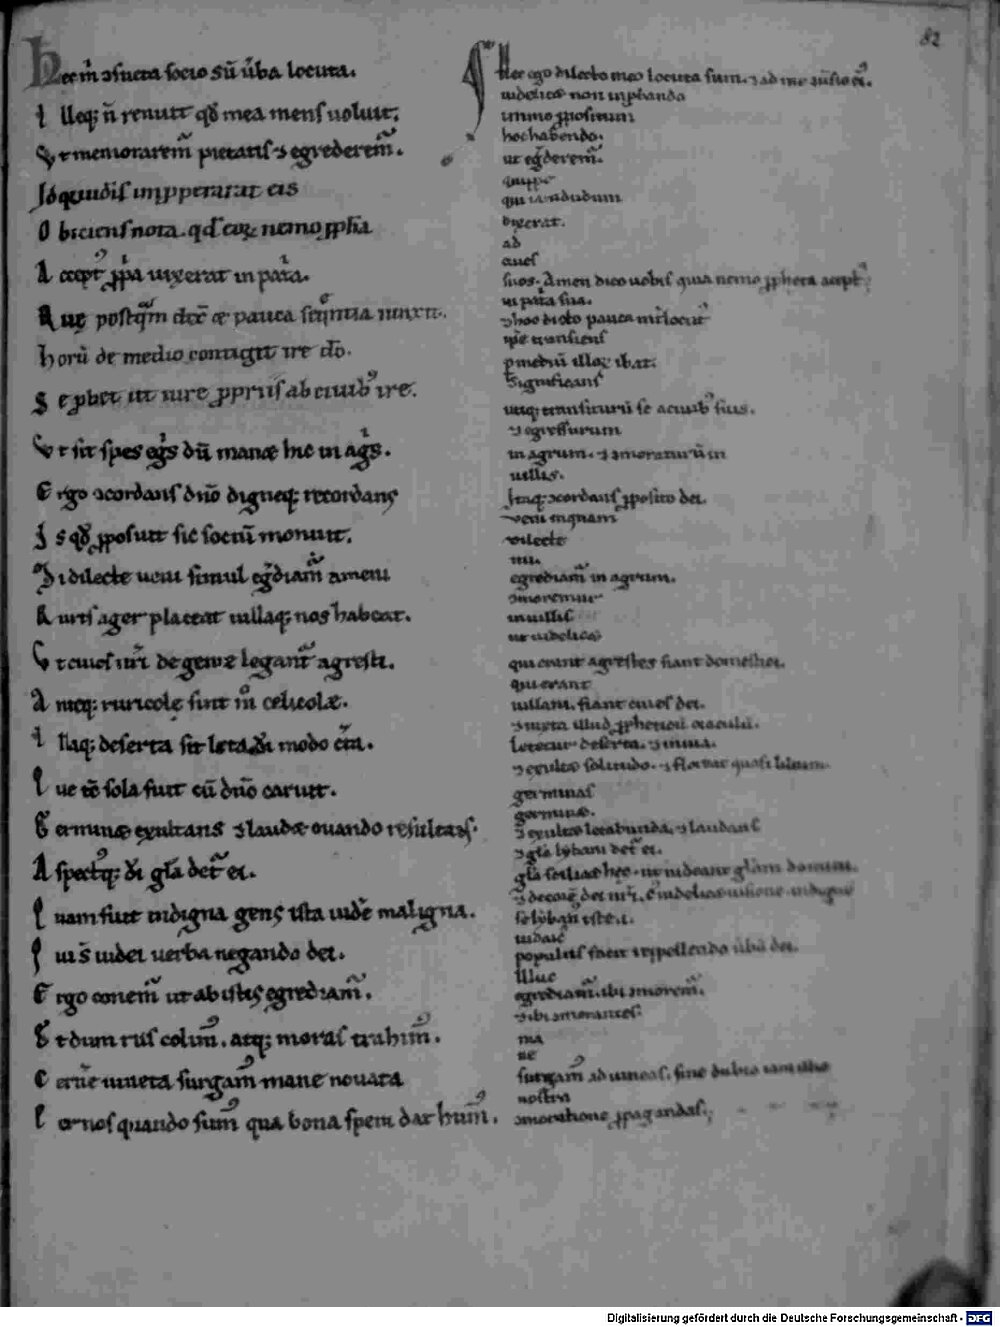 82
Hec m̄ ɔsueta socio sū v̄ba locuta.
Illeq; n̄ renuit qđ mea mens uoluit.
Vt memorarem̄ pietatis ⁊ egrederem̄.
Id q iudis
Obiciens nota. qđ eoꝝ nemo ꝓpha
Accept᾽ ꝓpa uixerat in pat̄a.
Que postq̄m pauca
Horū de medio contigit ire dō.
Se phet ut iure ꝓpriis ab ciuib᾽ ire.
Vt sit spes eg̓s dū manæ hic in ag̓s.
Ergo ɔcordans dn̄o digneq; recordans
Is qđ ꝓposuit sic sociū monuit.
Mi dilecte ueni simul eg̓diam̄ ameni
Ruris ager placeat uillaq; nos habeat.
Vt ciues nr̄i de gente legant᾽ agresti.
Anteq; ruricolę sint m̊ celicolæ.
Illaq; deserta sit leta dī modo c̄ta.
Que tē sola fuit cū dn̄o caruit.
Germinæ exultans ⁊ laudæ ouando resultans.
Aspectuq; dī gl̄a det᾽ ei.
Quam fuit indigna gens ista uidē maligna.
Quis iudei uerba negando dei.
Ergo conem᾽ ut ab istis egrediam᾽.
Et dum rus colim᾽. atq; moras trahim᾽.
Cernē uineta surgam᾽ mane nouata
Cernos quando sum᾽ qua bona spem dat hum᾽.
Hec ego dilecto meo locuta sum. ⁊ ad me
uidelicæ non inphanda
immo ꝓpositum
hoc habendo.
ut eg̓derem᾽.
quippe
qui iamdudum
dixerat.
ad
ciues
suos. Amen dico uobis quia nemo ꝓpheta accept᾽
in pat̄a sua.
⁊ hoc dicto pauca
ipse transiens
p mediū illoꝝ ibat.
Significans
utiq; transiturū se a ciuib᾽ suis.
⁊ egressurum
in agrum. ⁊ ɔmoraturū in
uillis.
Itaq; ɔcordans ꝓposito dei.
veni inquam
dilecte
mi.
egrediam᾽ in agrum.
ɔmoremur
in uillis
ut uidelicæ
qui erant agrestes fiant domestici.
qui erant
uillani. fiant ciues dei.
⁊ iuxta illud ꝓpheticū oraculū.
letetur deserta. ⁊ inuia.
⁊ exultæ solitudo. ⁊ floreat quasi lilium.
germinans
germinæ.
⁊ exultæ letabunda. ⁊ laudans
⁊ gl̄a lybani det᾽ ei.
gl̄a scilicæ hęc. ut uideant gl̄am domini.
⁊ decorē dei nr̄i.
iudaic᾽
populus fuit repellendo v̄bū dei.
Illuc
egrediam᾽. ibi ɔmorem᾽.
⁊ ibi ɔmorantes.
ma
ne
surgam᾽ ad uineas. sine dubio iam
nostra
ɔmoratione ꝓpagandas.
Digitalisierung gefördert durch die Deutsche Forschungsgemeinschaft - DFG